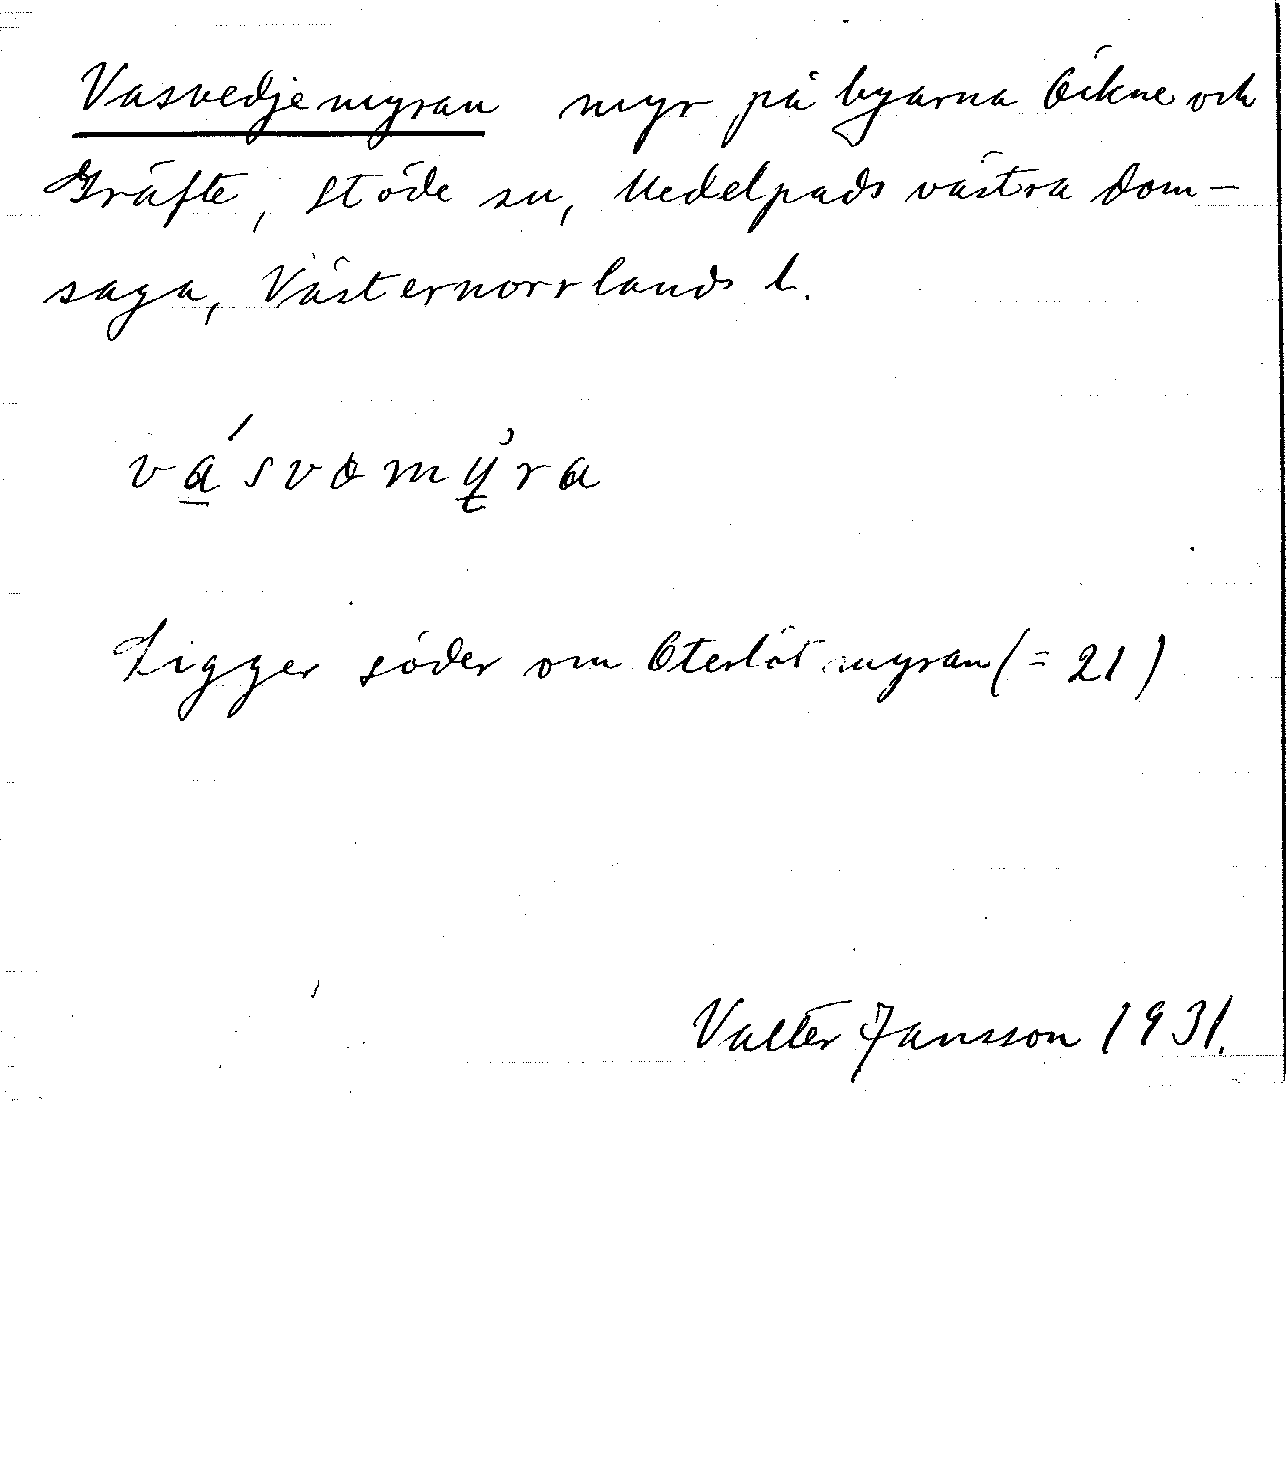 Vasvedjemyran myr på byarna Öikne och
Gräfte, Stöde sn, Medelpads västra dom-
saga, Västernorrlands l.
Ligger söder om myran (= 21)
Valter Jansson 1931.